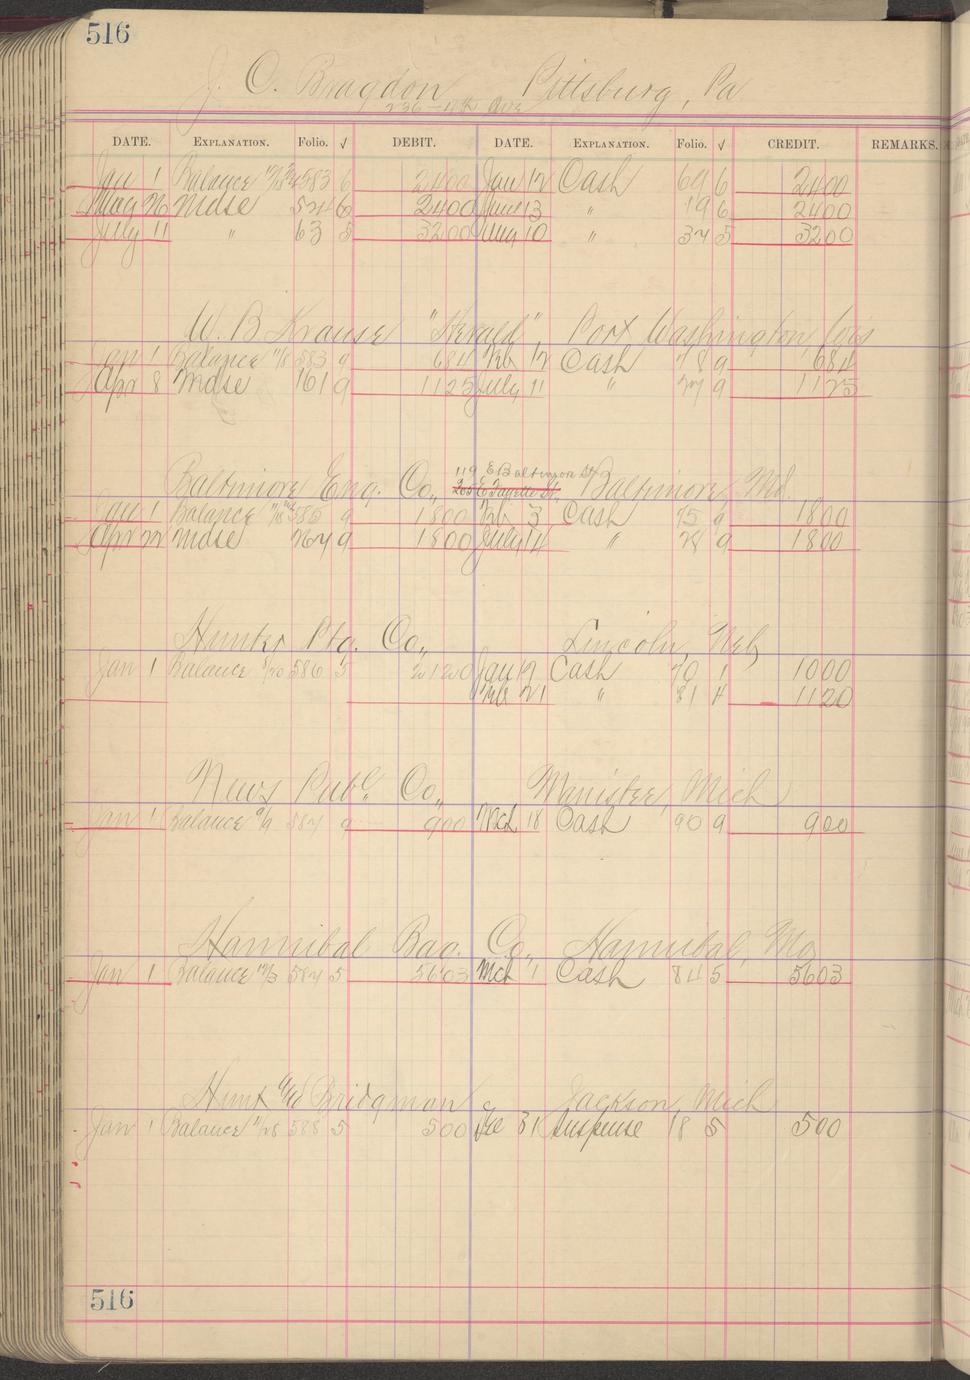 516
J. O. Bragdon Pittsburg, Pa
236 - 11th Ave
DATE. EXPLANATION. Folio. √ DEBIT. DATE. EXPLANATION. Folio. √ CREDIT. REMARKS.
Jan 1 Balance 583 6 2400 Jan 12 Cash 69 6 2400
May 26 Mdse 524 6 2400 June 13 " 19 6 2400
July 11 " 63 5 3200 Aug 10 " 34 5 3200
W. B Krause "Herald", Port Washington, Wis
Jan 1 Balance 11/8 583 9 684 Feb 12 Cash 78 9 684
Apr 8 Mdse 161 9 1125 July 11 " 27 9 1125
119 E Baltimore St
Baltimore Eng. Co., 205 E Fayette St, Baltimore, Md.
Jan 1 Balance 585 9 1800 Feb 3 Cash 75 9 1800
Apr 22 Mdse 264 9 1800 July 14 " 28 9 1800
Hunter Ptg. Co., Lincoln, Neb,
Jan 1 Balance 586 5 2120 Jan 17 Cash 70 1 1000
Feb 21 " 81 4 1120
News Publ. Co., Manistee, Mich
Jan 1 Balance 587 9 900 Mch 18 Cash 90 9 900
Hannibal Bag. Co., Hannibal, Mo
Jan 1 Balance 587 5 5603 Mch 1 Cash 84 5 5603
Hunt & Bridgman Jackson, Mich
Jan 1 Balance 11/28 588 5 500 De 31 Suspense 18 5 500
516